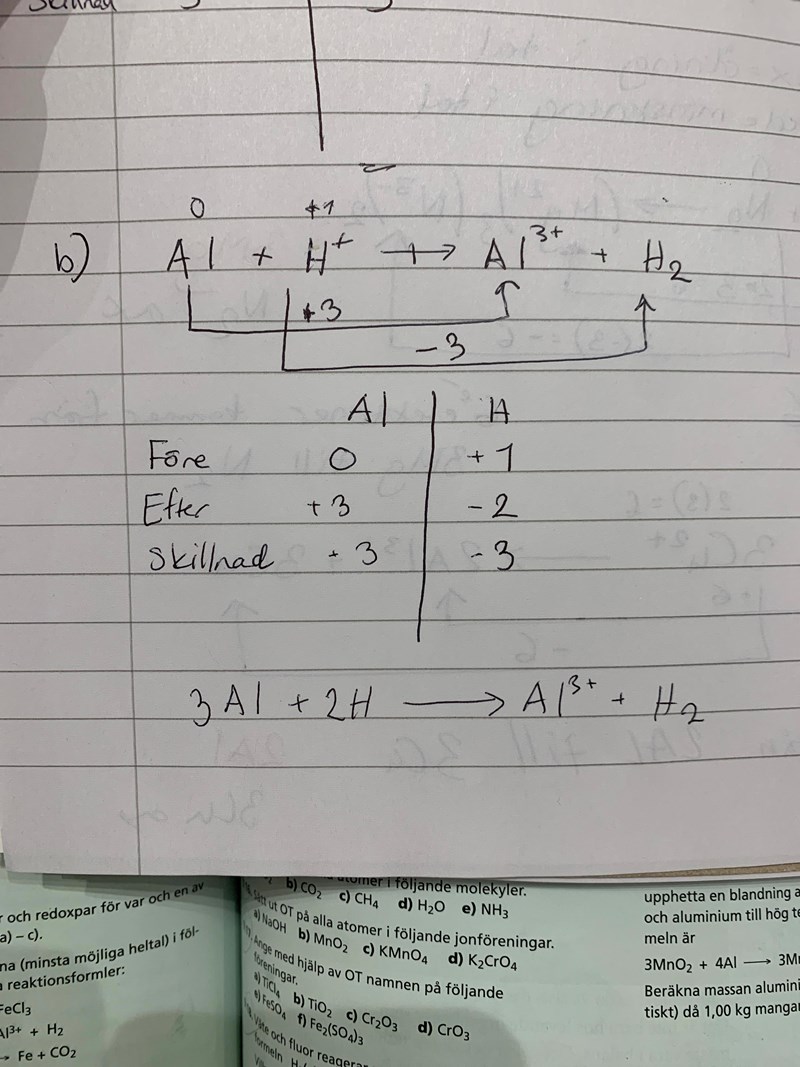 Skillnad
0 +1
b) Al + H⁺ → Al³⁺ + H₂
+3
-3
Al H
Före 0 +1
Efter +3 -2
Skillnad +3 -3
3Al + 2H → Al³⁺ + H₂
r och redoxpar för var och en av
a) – c).
na (minsta möjliga heltal) i föl-
reaktionsformler:
FeCl₃
Al³⁺ + H₂
→ Fe + CO₂
i följande molekyler.
b) CO₂ c) CH₄ d) H₂O e) NH₃
ut OT på alla atomer i följande jonföreningar.
a) NaOH b) MnO₂ c) KMnO₄ d) K₂CrO₄
Ange med hjälp av OT namnen på följande
föreningar.
a) TiCl₄ b) TiO₂ c) Cr₂O₃ d) CrO₃
e) FeSO₄ f) Fe₂(SO₄)₃
Väte och fluor reagerar
formeln
upphetta en blandning a
och aluminium till hög te
meln är
3MnO₂ + 4Al → 3M
Beräkna massan alumini
tiskt) då 1,00 kg mangan